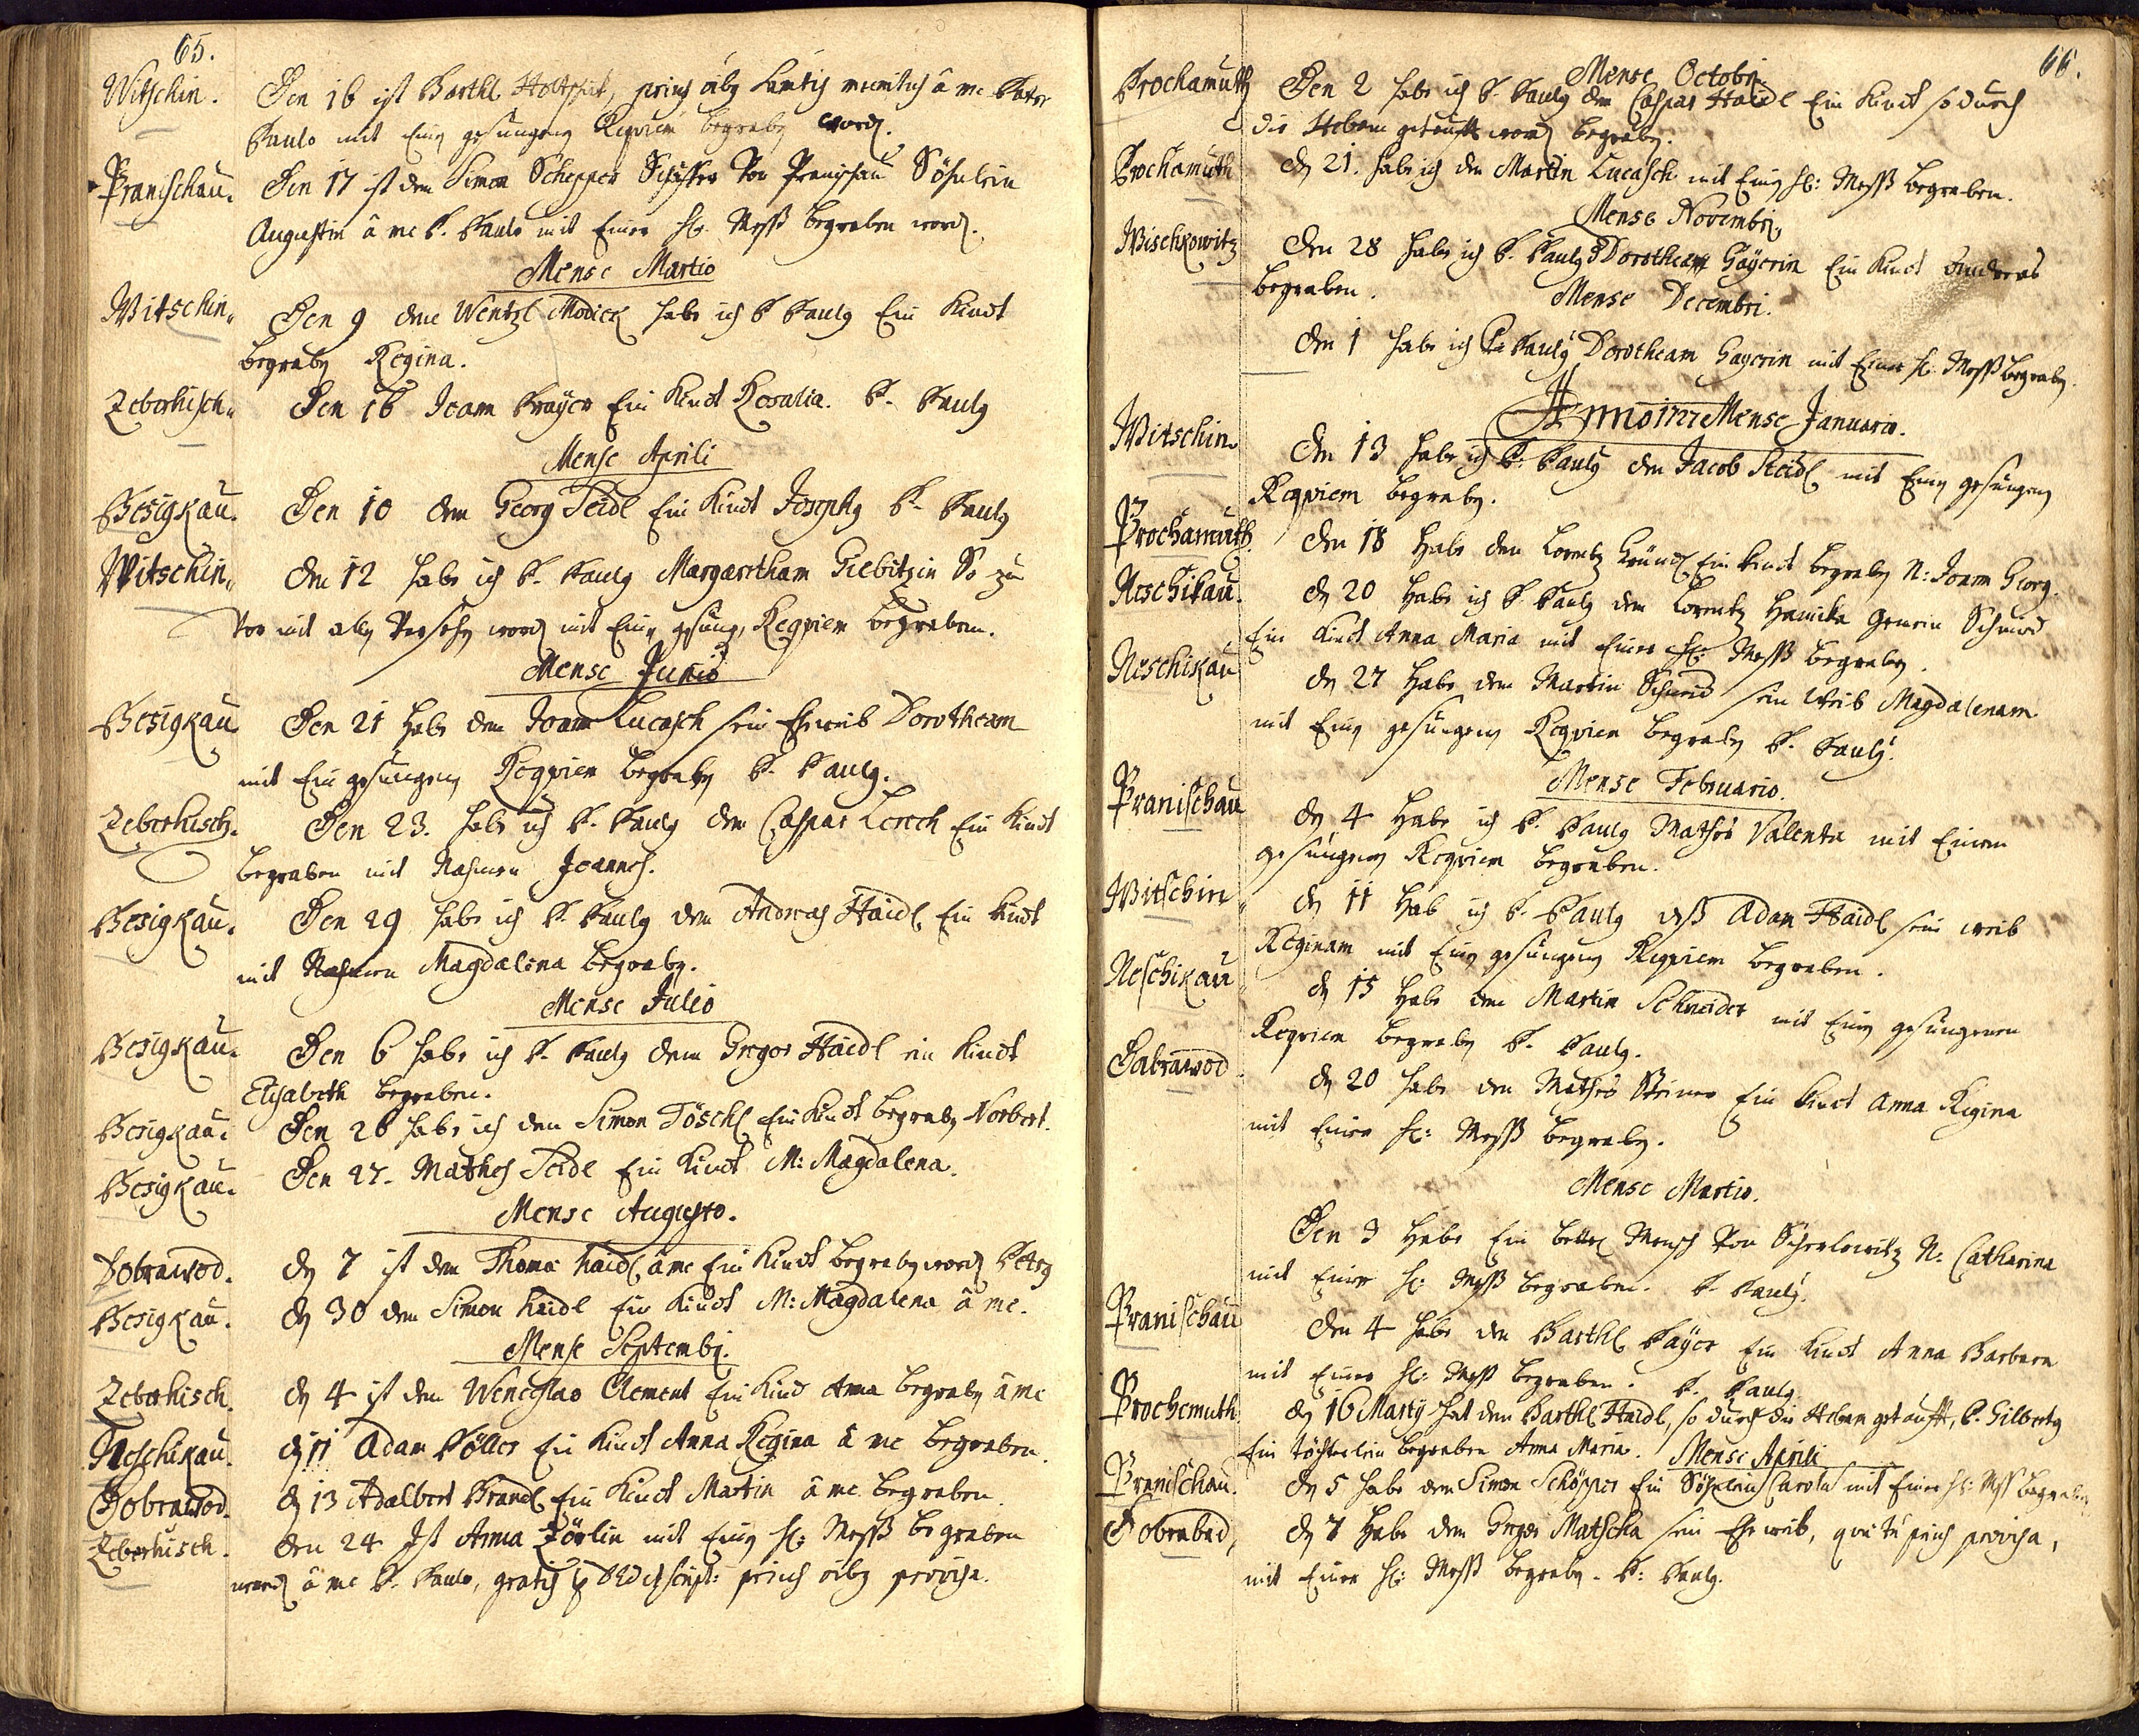 65.
Witschin. Den 16 ist Barthl, prius oibus munitus à me Pater
Paulo mit Einen gesungenen Requiem begraben word.
Pranischau. Den 17 ist dem Simon Schepper Schäffer Von Pranischau Söhnlein
Augustin à me P. Paulo mit Einer hl: Mess begraben word.
Mense Martio
Witschin. Den 9 dem Wentzl Modick habe ich P Paulg Ein Kindt
begrabn Regina.
Zeberhisch. Den 16 Joann Prayer Ein Kindt Rosalia. P. Paulg
Mense Aprili
Besigkau. Den 10 dem Georg Seidl Ein Kindt Josephg P. Paulg
Witschin. Den 12 habe ich P. Paulg Margaretham Giebitzin So zu
Vor mit alln Versehn word mit Einen gesung, Requiem begraben.
Mense Junio
Besigkau Den 21 habe dem Joann Lucasch sein Eheweib Dorotheam
mit Ein gesungen Requiem begrabn P. Paulg.
Zeberhisch. Den 23. habe ich P. Paulg dem Caspar Lerch Ein Kindt
begraben mit Nahmen Joannes.
Besigkau. Den 29 habe ich P. Paulg dem Andreas Haidl Ein Kindt
mit Nahmen Magdalena begrabn.
Mense Julio
Besigkau. Den 6 habe ich P. Paulg dem Gregor Haidl ein Kindt
Elisabeth begraben.
Besigkau. Den 26 habe ich dem Simon Töschl Ein Kindt begrabn Norbert.
Besigkau. Den 27. Mathes Seidl Ein Kindt M: Magdalena.
Mense Augusto.
Dobrawod. dn 7 ist dem Thoma Haidl à me Ein Kindt begrabn word Petrg
Besigkau. dn 30 dem Simon Haidl Ein Kindt M: Magdalena à me.
Mense Septembri.
Zeberhisch. dn 4 ist dem Wenceslao Clement Ein Kind Anna begrabn à me
Neschikau. dn 11 Adam Föller Ein Kindt Anna Regina à me begraben.
Dobrawod. dn 13 Adalbert Brandl Ein Kindt Martin à me begraben.
Zeberhisch. den 24 Ist Anna Zörlin mit Einer hl: Mess begraben
word à me P. Paulo, gratis prius oibg provisa.
66.
Mense Octobri
Prochamuth Den 2 habe ich P. Paulg dem Caspar Haidl Ein Kindt so durch
die Hebam getaufft word begrabn.
Prochamuth dn 21. habe ich den Martin Lucasch mit Einer hl: Mess begraben.
Mense Novembri
Wischkowitz Den 28 habe ich P. Paulg Dorotheam Gaÿerin Ein Kindt Andreas
begraben.
Mense Decembri.
den 1 habe ich P. Paulg Dorotheam Gayerin mit Einer hl: Mess begrabn.
Anno 1727 Mense Januario.
Witschin. den 13 habe ich P. Paulg den Jacob Steidl mit Einen gesungen
Requiem begrabn.
Prochamuth. den 18 habe dem Lorentz Gründl Ein Kindt begrabn N: Joann Georg.
Neschikau. dn 20 habe ich P. Paulg dem Lorentz Hanika Gemein Schmid
Ein Kindt Anna Maria mit Einer hl: Mess begrabn.
Neschikau dn 27 habe dem Martin Schmid sein Weib Magdalenam
mit Einen gesungen Requiem begrabn P. Paulg.
Mense Februario.
Pranischau dn 4 habe ich P. Paulg Mathes Valenta mit Einem
gesungen Requiem begraben.
Witschin dn 11 hab ich P. Paulg dess Adam Haidl sein weib
Reginam mit Einen gesungen Requiem begraben.
Neschikau dn 15 habe dem Martin Schneider mit Einen gesungenen
Requiem begrabn P. Paulg.
Dabrawod. dn 20 habe dem Mathes Steiner Ein Kindt Anna Regina
mit Einer hl: Mess begrabn.
Mense Martio.
Den 3 habe Ein bettel Mensch Von Scherlowitz N: Catharina
mit Einer hl: Mess begraben. P. Paulg.
Pranischau den 4 habe dem Barthl Payer Ein Kindt Anna Barbara
mit Einer hl: Mess begraben. P. Paulg.
Prochemuth dn 16 Martÿ hat dem Barthl Haidl, so durch die Hebam getaufft, P. Gilbertg
Ein töchterlein begraben Anna Maria. Mense Aprili
Pranischau. dn 5 habe dem Simon Schöpper Ein Söhnlein Carolus mit Einer hl: Mess begraben
Dobrabod, dn 7 habe dem Gregor Matscha sein Eheweib, prius provisa,
mit Einer hl: Mess begrabn. P: Paulg.